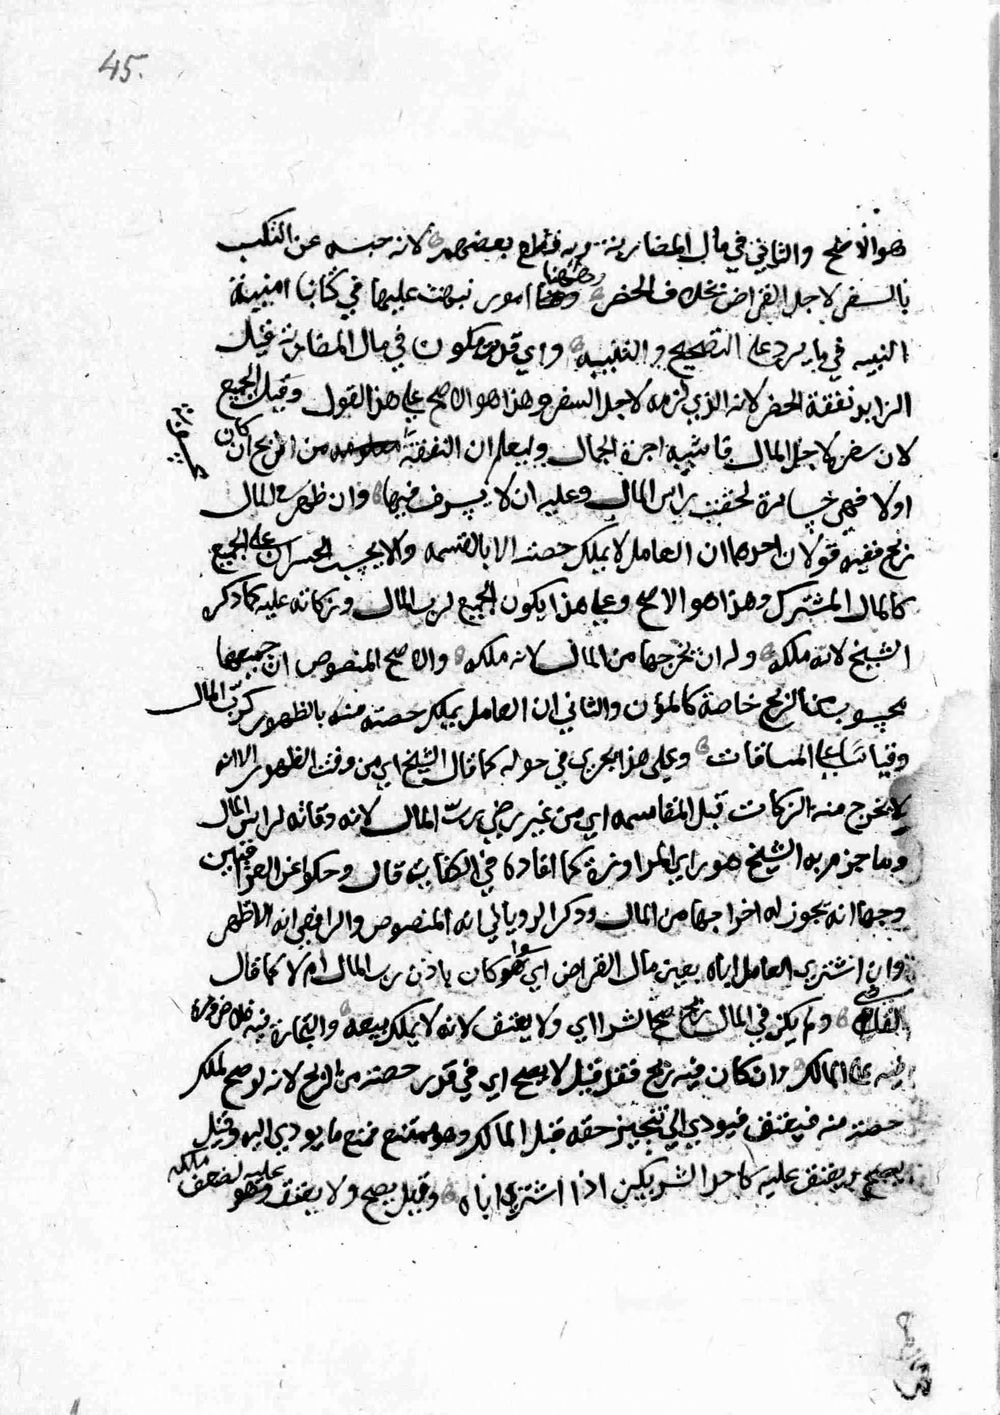 45.
هو الاصح والثاني في مال المضاربة وبه قطع بعضهم لانه حبسه عن التكسب
بالسفر لاجل القراض بخلاف الحضر وههنا امور نبهت عليها في كتابنا امنية
النبيه في ما يرد على التصحيح والتنبيه واي قدر يكون في مال المضاربة قيل
الزايد نفقة الحضر لانه الذي لزمه لاجل السفر وهذا هو الاصح على هذا القول وقيل الجميع
لان سفره لاجل المال فاشبه اجرة الحمال وليعلم ان النفقة من الربح ان كان
اولا فهي خسارة لحقت براس المال وعليه ان لا يسرف فيها وان ظهر في المال
ربح ففيه قولان احدهما ان العامل لا يملك حصته الا بالقسمه والا يحسب الخسران على الجميع
كالمال المشترك وهذا هو الاصح وعلى هذا يكون الجميع لرب المال وزكاته عليه كما ذكر
الشيخ لانه ملكه وله ان يخرجها من المال لانه ملكه والاصح المنصوص ان جميعها
محسوب من الربح خاصة كالمؤن والثاني ان العامل يملك حصته منه بالظهور كرب المال
وقياسا على المساقات وعلى هذا يجري في حوله كما قال الشيخ اي من وقت الظهور الا انه
لا يخرج منه الزكات قبل المقاسمه اي من غير رضى رب المال لانه وقاية لراس المال
وما جزم به الشيخ هو راي المراوزة كما افاده في الكفاية قال وحكوا عن العراقيين
وجها انه يجوز له اخراجها من المال وذكر الروياني انه المنصوص والرافعي انه الاظهر
وان اشترى العامل اباه بعين مال القراض اي سوا كان باذن رب المال ام لا كما قال
القاضي ولم يكن في المال ربح صح الشرا اي ولا يعتق لانه لا يملك بيعه والتجارة فيه فلا ضرر
فيه على المالك وان كان فيه ربح فقد قيل لا يصح اي في قدر حصته من الربح لانه لو صح لملك
حصته منه فيعتق فيودي الى تنجيز حقه قبل المالك وهو ممتنع فمنع ما يودي اليه وقيل
يصح ويعتق عليه كاحد الشريكين اذا اشترى اباه وقيل يصح ولا يعتق عليه لضعف ملكه وهو